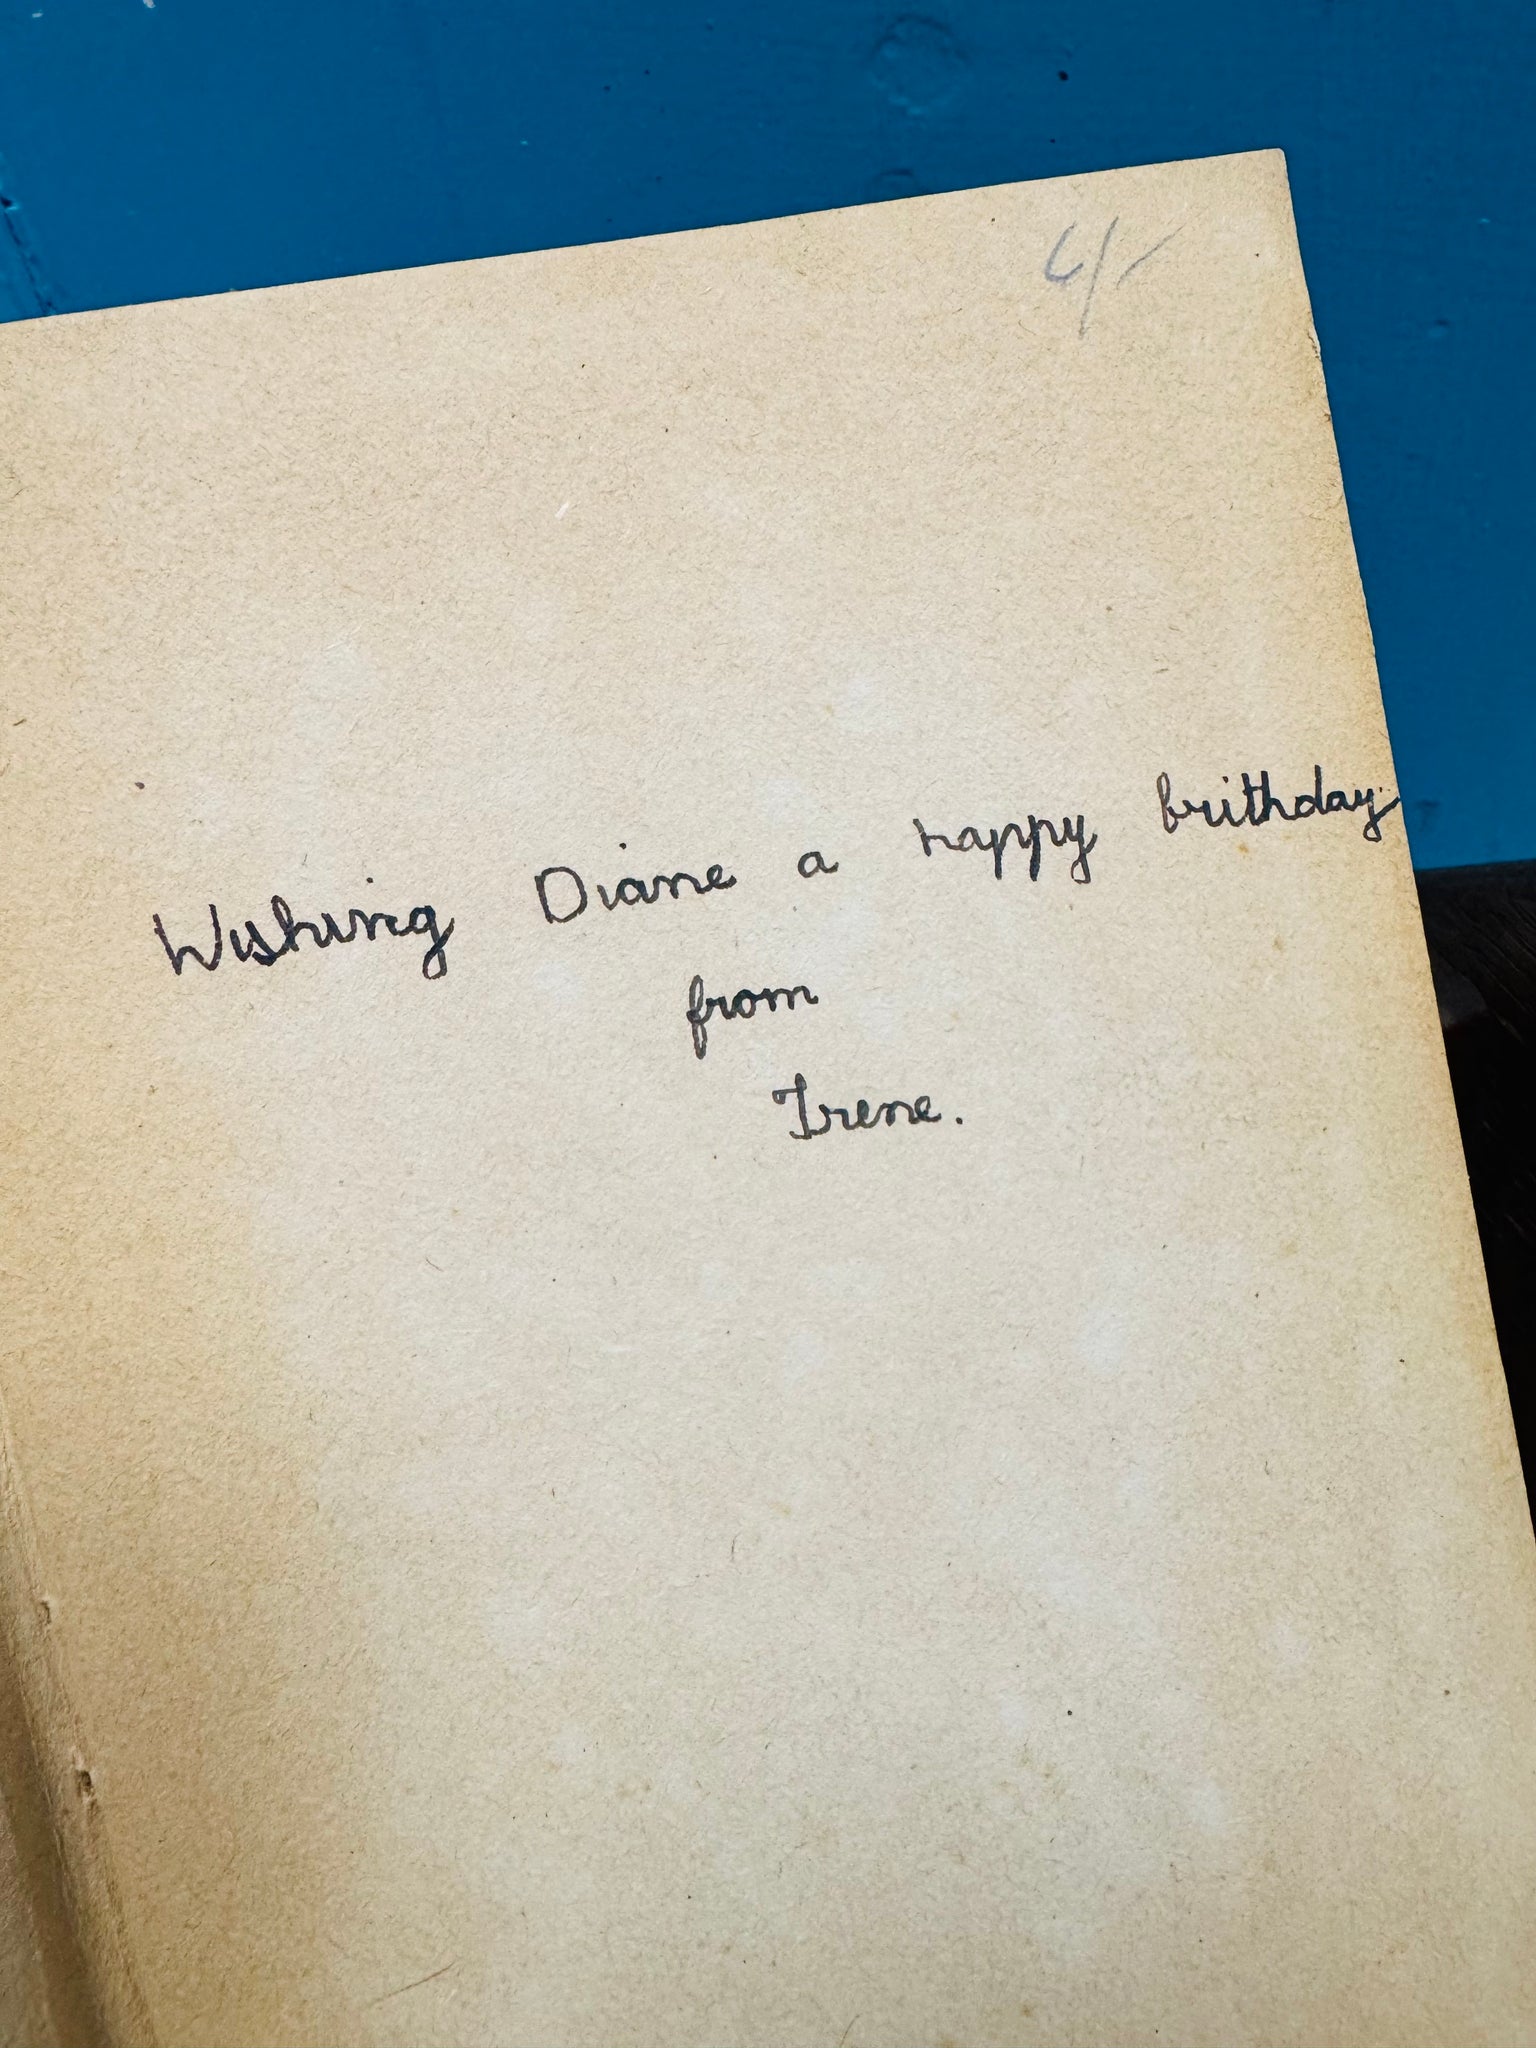 4/-
Wishing Diane a happy brithday
from
Irene.